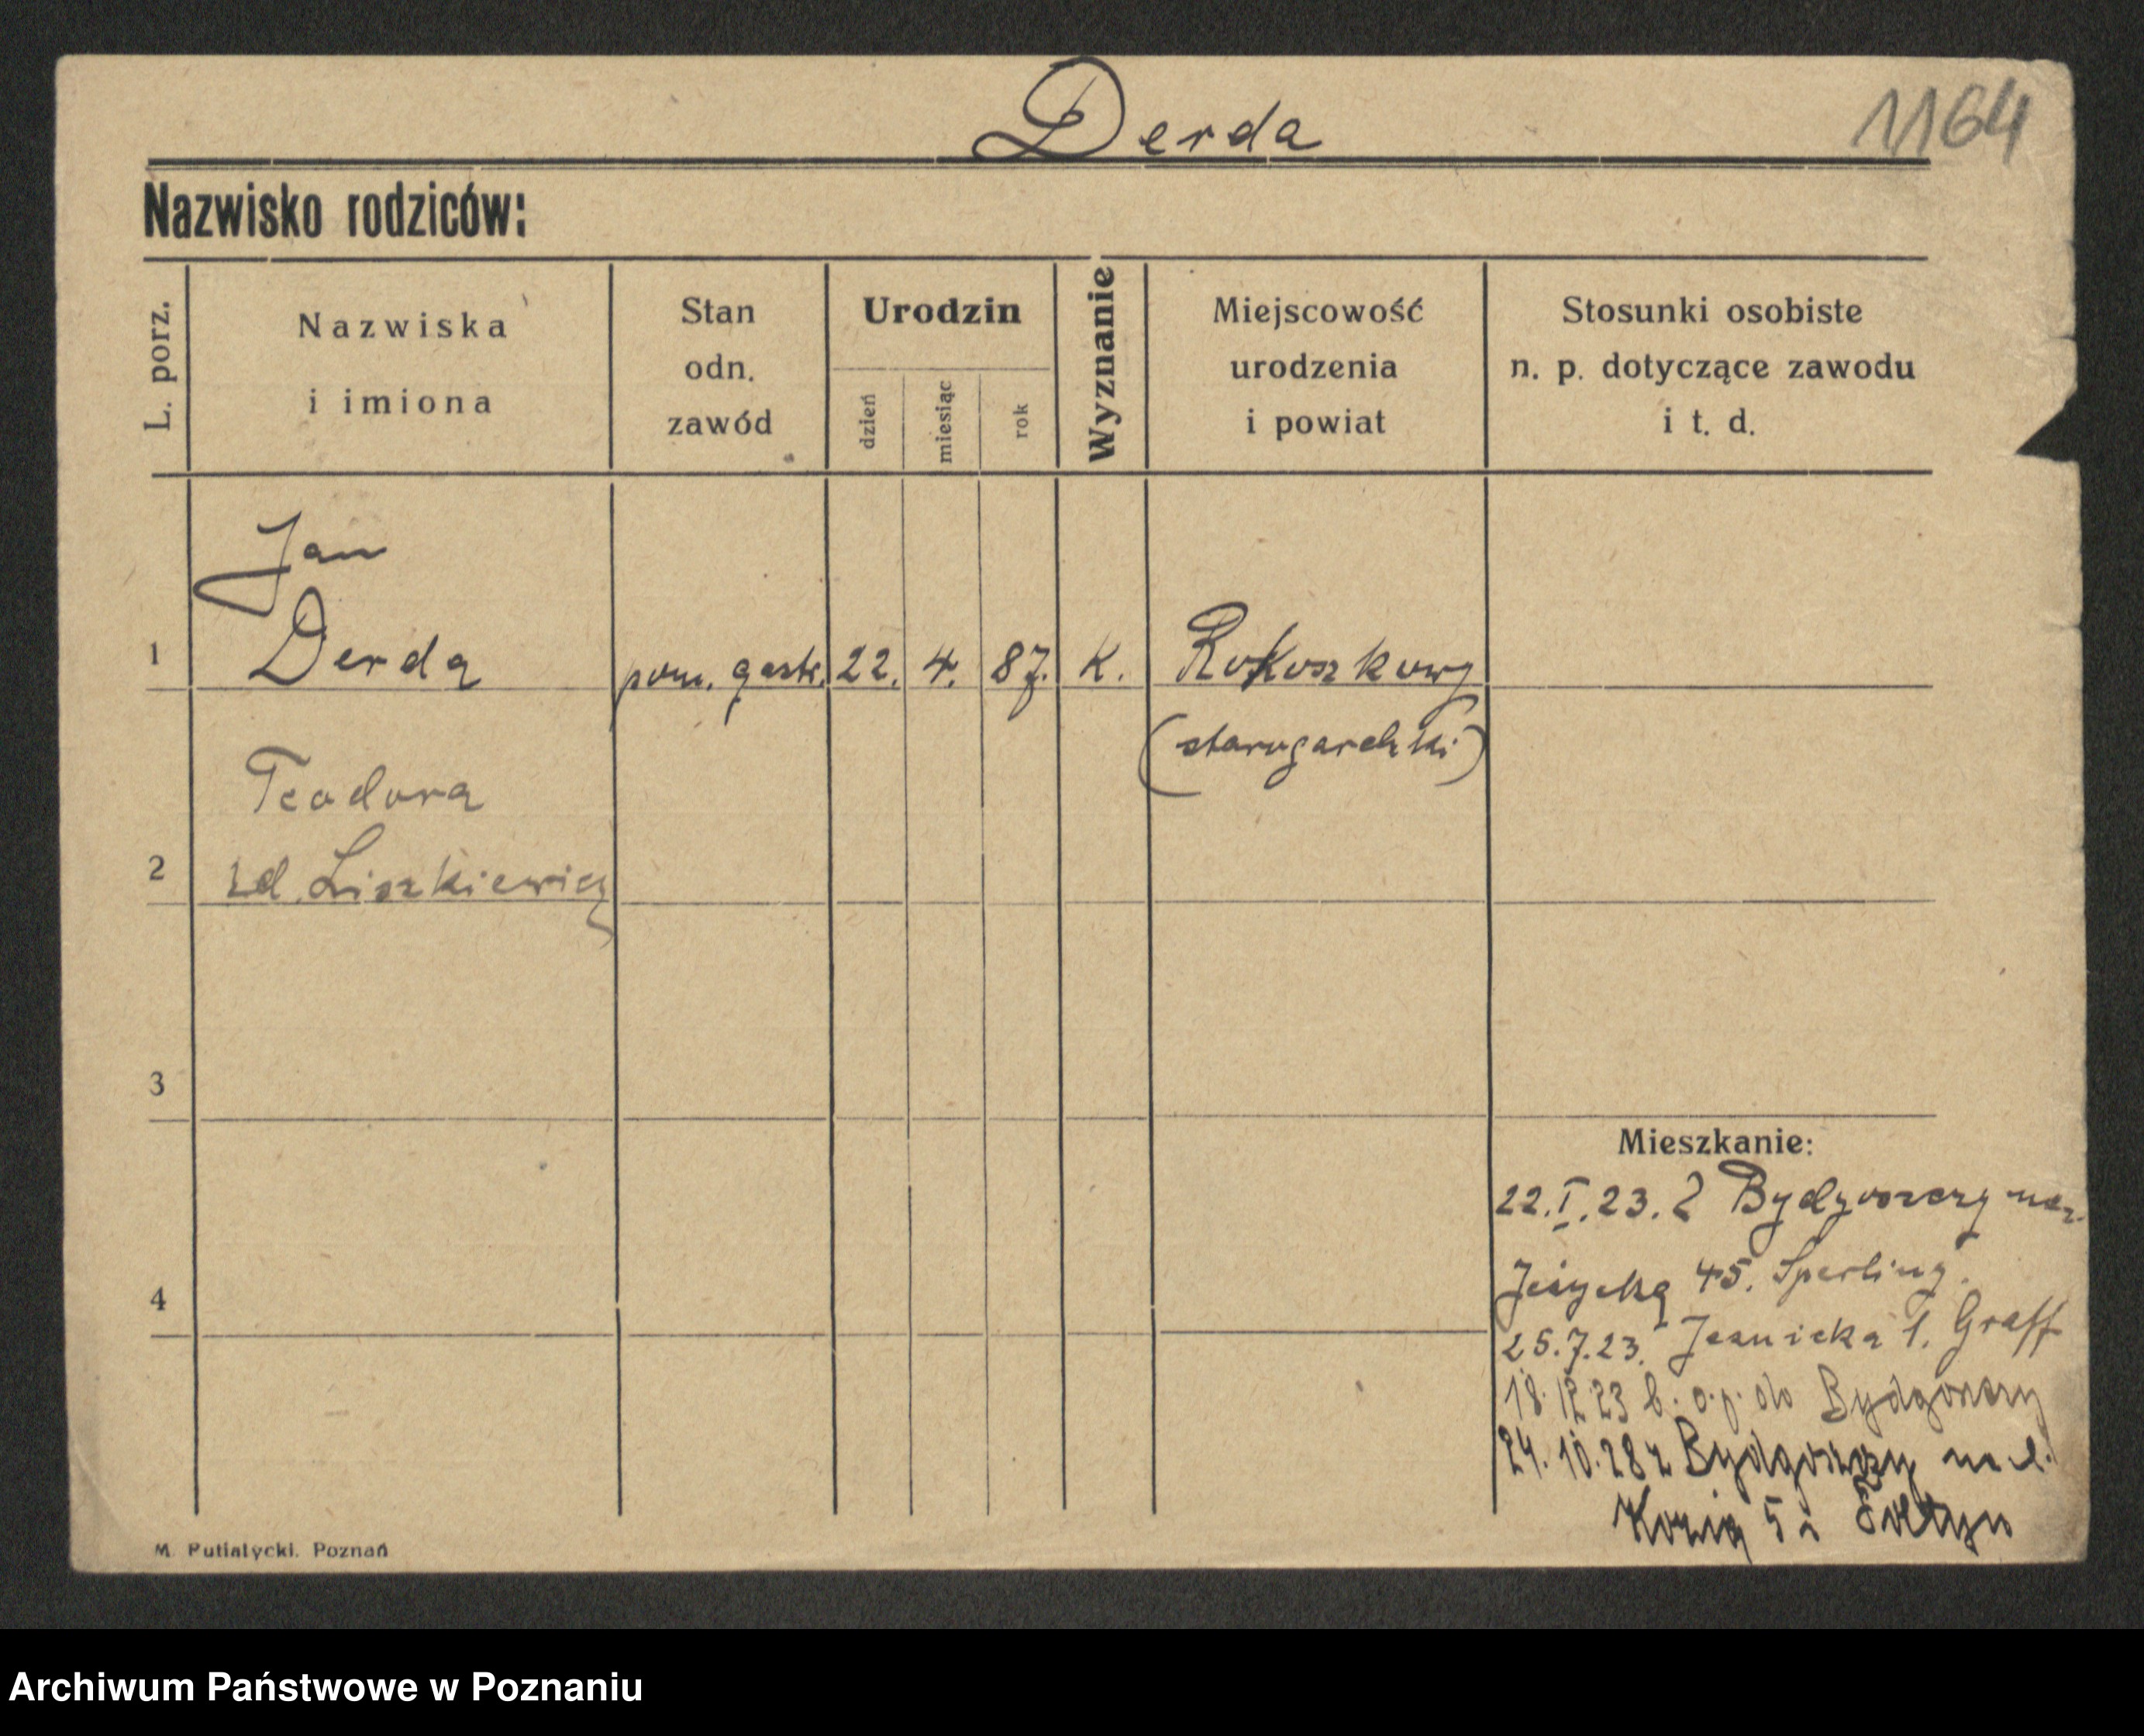 Derda
1164
Nazwisko rodziców:
L. porz.
Nazwiska
i imiona
Stan
odn.
zawód
Urodzin
dzień
miesiąc
rok
Wyznanie
Miejscowość
urodzenia
i powiat
Stosunki osobiste
n. p. dotyczące zawodu
i t. d.
Jan
1 Derda pom. gastr. 22. 4. 87. K. Rokoszkowy
(starogardzki)
Teodora
2 Liszkiewicz
3
Mieszkanie:
22.I.23. z Bydgoszczy
4
Jeżycka 45. Sperling.
25.7.23. 1. Graff
18.12.23 do Bydgoszczy
24.10.28 z Bydgoszczy
Kozia 5
M. Putiatycki. Poznań
Archiwum Państwowe w Poznaniu